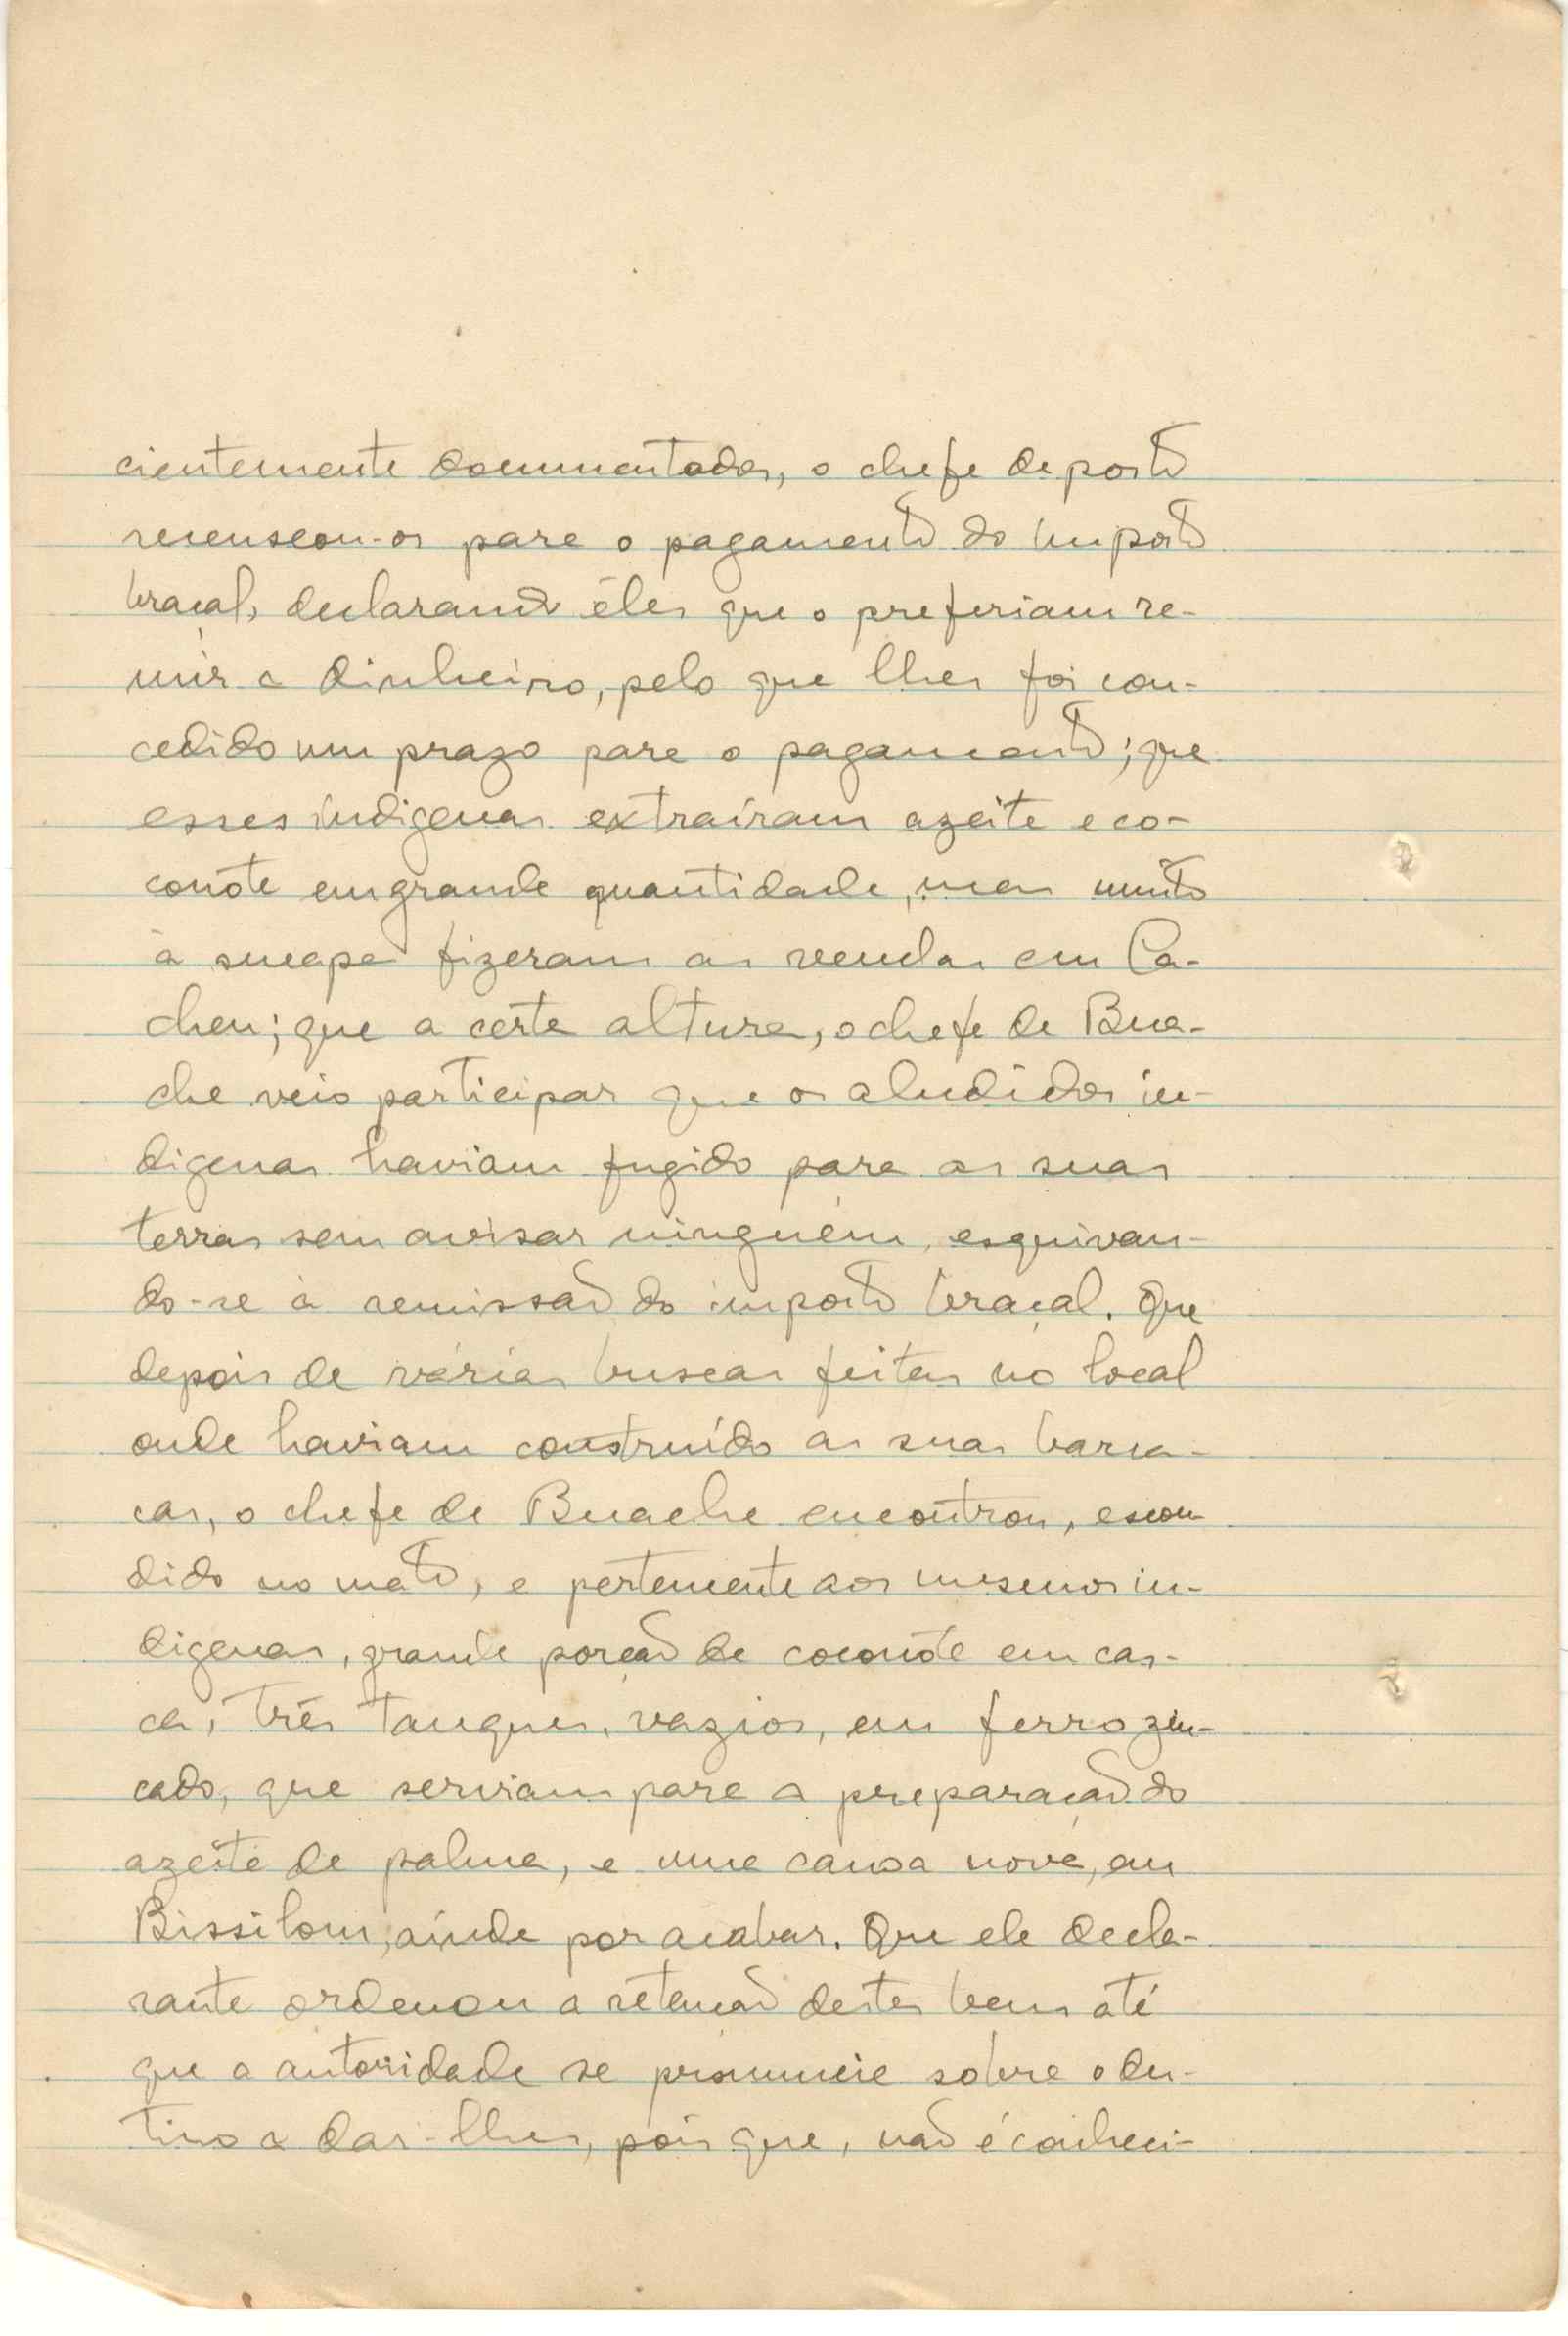 cientemente documentados, o chefe de posto
recenseou-os para o pagamento do imposto
braçal, declarando êles que o preferiam re-
mir a dinheiro, pelo que lhes foi con-
cedido um prazo para o pagamento; que
esses indigenas extraíram azeite e co-
conote em grande quantidade, mas muito
à sucapa fizeram as vendas em Ca-
cheu; que a certa altura, o chefe de Bua-
che veio participar que os aludidos in-
digenas haviam fugido para as suas
terras sem avisar ninguém, esquivan-
do-se à remissão do imposto braçal. Que
depois de várias buscas feitas no local
onde haviam construído as suas barra-
cas, o chefe de Buache encontrou, escon-
dido no mato, e pertencente aos mesmos in-
digenas, grande porção de coconote em cas-
ca, três tanques, vazios, em ferro zin-
cado, que serviam para a preparação do
azeite de palma, e uma canoa nova, em
Bissilom, ainda por acabar. Que ele decla-
rante ordenou a retenção destes bens até
que a autoridade se pronuncie sobre o des-
tino a dar-lhes, pois que, não é conheci-